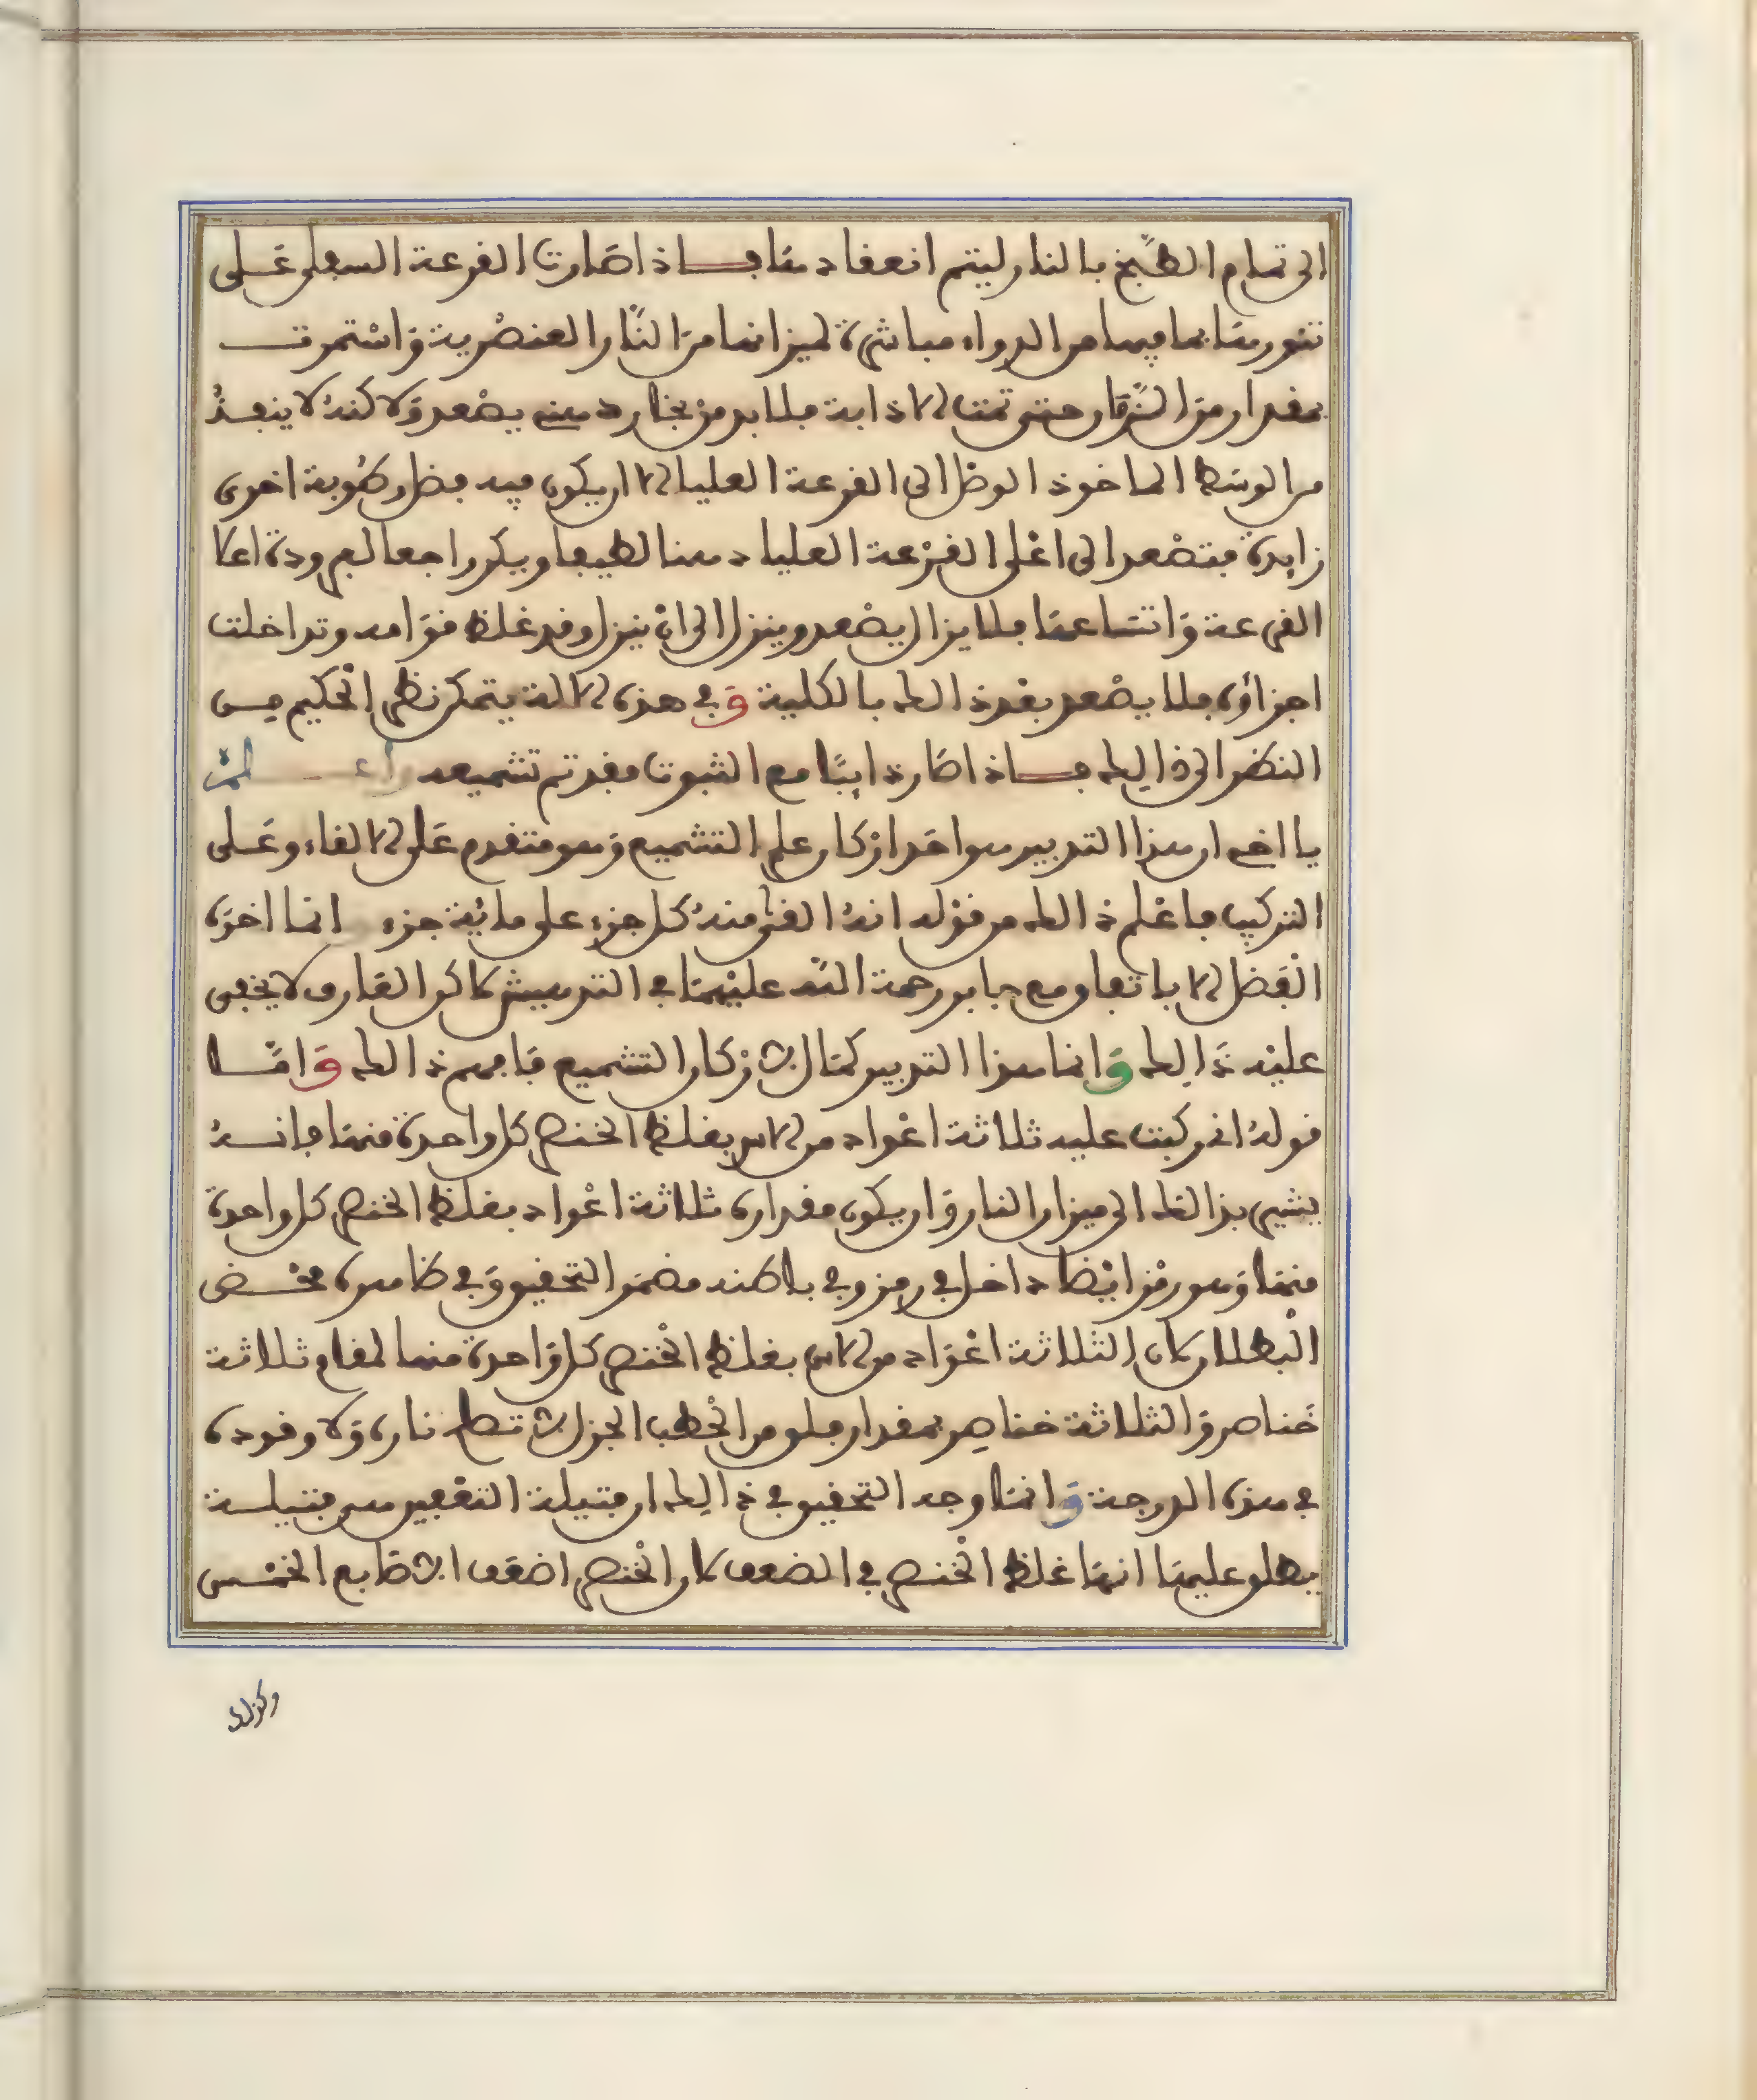 الى تمام الطبخ بالنار ليتم انعقادها فاذا صارت القرعة السفلى على
تنورها بما فيها من الدواء مباشرة لميزانها من النار العنصرية واستمرت
بمقدار من الزمان حتى تمت الاذابة فلا بد من بخار دهني يصعد ولاكنه لا ينفذ
من الوسط الماخوذ الوصل الى القرعة العليا الا ان يكون فيه فضل رطوبة اخرى
زايدة فتصعد الى اعلى القرعة العليا دهنا لطيفا ويكر راجعا لبرودة اعلا
القرعة واتساعها فلا يزال يصعد وينزل الى ان ينزل وقد غلظ قوامه وتداخلت
اجزاؤه فلا يصعد بعد ذالك بالكلية وفي هذه الالة يتمكن نظر الحكيم من
النظر الى ذالك فاذا صار ذايبا مع الثبوت فقد تم تشميعه واعلم
يا اخي ان هذا التدبير هو احد اركان علم التشميع وهو متقدم على الالقاء وعلى
التركيب فاعلم ذالك من قوله انه القى منه كل جزء على مائة جزء انما اخذه
الفصل الا باتفاق مع جابر رحمة الله عليهما في التدهيش لاكن العارف لا يخفى
عليه ذالك وانما هذا التدبير كمال الاركان التشميع فافهم ذالك واما
قوله اني ركبت عليه ثلاثة اعواد من الاس بغلظ الخنصر كل واحدة منها فانه
يشير بذالك الى ميزان النار وان يكون مقداره ثلاثة اعواد بغلظ الخنصر كل واحدة
منها وهو رمز ايضا داخل في رمز وفي باطنه مضمر التحقيق وفي ظاهره محض
البطلان لان الثلاثة اعواد من الاس بغلظ الخنصر كل واحدة منها لمقام ثلاثة
خناصر والثلاثة خناصر بمقدار فلق من الحطب الجزل لا تصلح ناره ولا وقوده
في هذه الدرجة وانما وجه التحقيق في ذالك ان فتيلة التقعير هي فتيلة
يطلق عليها انها غلظ الخنصر في الضعف لان الخنصر اضعف الاصابع الخمس
وكذلك